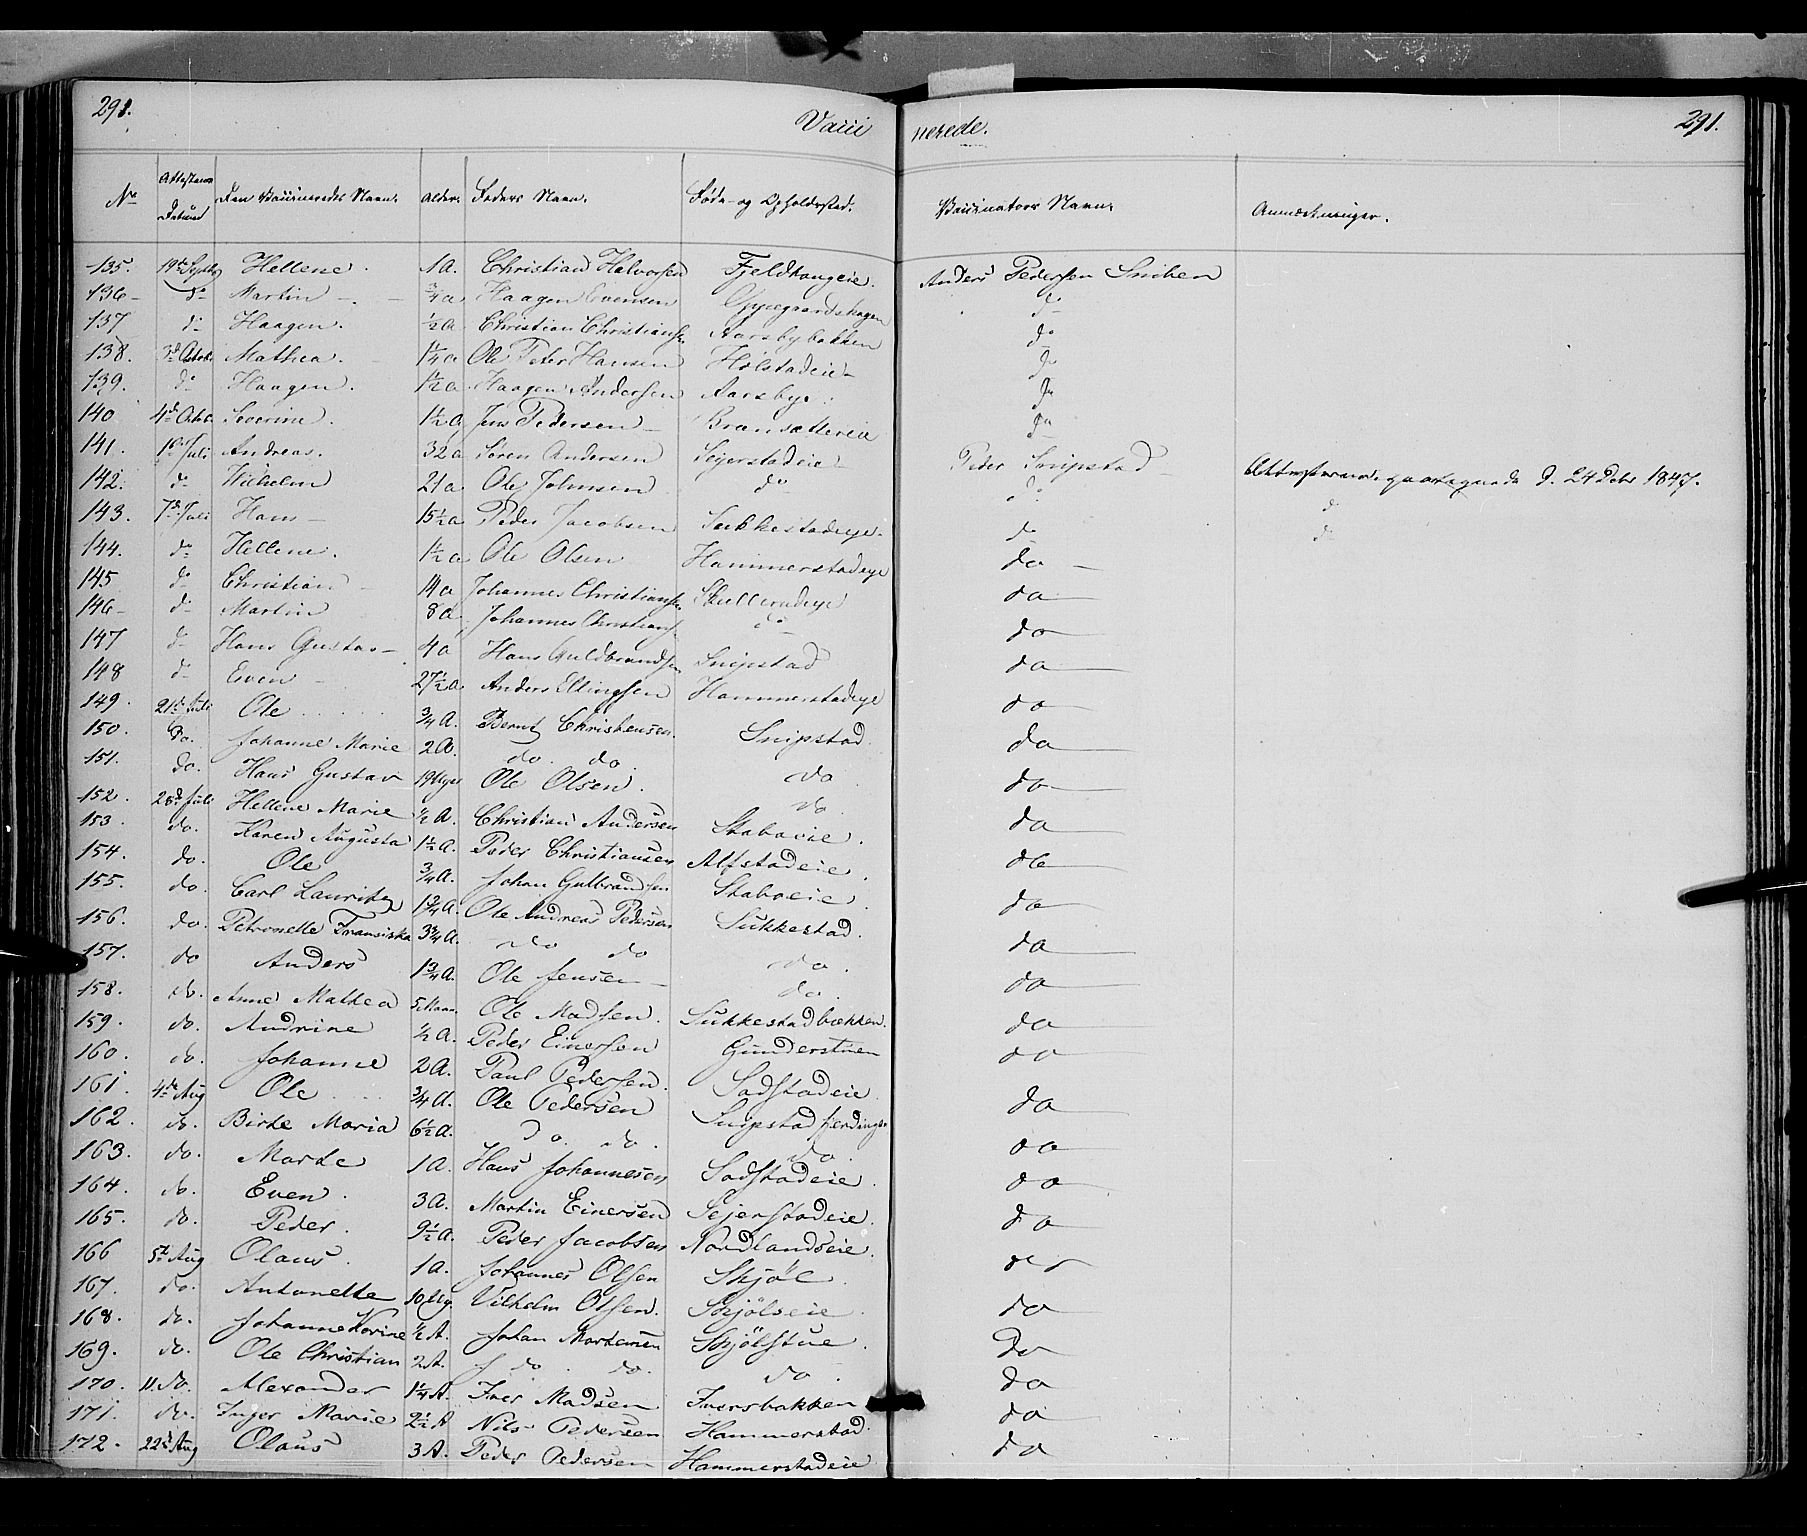 291. Vacci nerede. 291.
No Attestens Datum Den Vaccineredes Navn. Alder. Faders Navn. Føde- og Opholdssted. Vaccinators Navn. Anmærkninger.
135. 19de Septbr Hellene. 1a. Christian Halvorsen Fjeldhaugeie. Anders Pedersen Sniben
136 do Martin 3/4a Haagen Evensen Oppegaardshagen do
137 do Haagen. 1/2a Christian Christians. Aarsbybakken do
138. 3d Octob. Mathea. 1 1/4a Ole Peter Hansen Holstadeie do
139. do Haagen. 1 1/2a Haagen Andersen Aarsbye. do
140 4d Octob. Severine. 1 1/2a Jens Pedersen Bransættereie do
141. 1ste Juli Andreas. 32a Søren Andersen Seyerstadeie Peder Snipstad Attesterne modtagne d. 24 Debr 1847.
142. do Wilhelm 21a Ole Johnsen do do do
143. 7d Juli Hans 15 1/2a Peder Jacobsen Sukkestadeye do do
144. do Hellene. 1 1/2a Ole Olsen Hammerstadeye do
145 do Christian 14a Johannes Christians. Skullerudeye do
146 do Martin 8a Johannes Christians. do do
147 do Hans Gustav 4a Hans Guldbrandsen Snipstad do
148 do Even 27 1/2a. Anders Ellingsen Hammerstadeye do
149. 21de Juli Ole 3/4 A. Bernt Christensen. Snipstad. do
150. do. Johanne Marie 2 A. do. do. do do
151. do. Hans Gustav 19 Uger Ole Olsen. do. do
152. 28d Juli Hellene Marie 1/2 A. Christian Andersen Staboeie. do
153. do. Karen Augusta 1 1/2 A. Peder Christiansen Alfstadeie. do
154. do. Ole 3/4 A. Johan Gulbrandsen Staboeie. do
155. do. Carl Lauritz 1 3/4 A. Ole Andreas Pedersen Sukkestad. do
156. do. Petronelle Fransiska 3 3/4 A. do do do. do
157. do Anders 1 3/4 A. Ole Jensen do. do
158. do. Anne Mathea 5 Maan. Ole Madsen. Sukkestadbakken. do
159. do. Andrine 1/2 A. Peder Einersen Gunderstuen do
160. do. Johanne 2 A. Paul Pedersen. Sadstadeie. do
161. 4de Aug Ole 3/4 A. Ole Pedersen Snipstad fjerdingen do
162. do. Birte Maria 6 1/2 A. do. do. do. do
163. do. Marte 1 A. Hans Johannesen Sadstadeie. do
164. do. Even. 3 A. Martin Einersen Sejerstadeie. do
165. do. Peder. 9 1/2 A. Peder Jacobsen Nordlandseie. do
166 5te Aug Olaus. 1 A. Johannes Olsen Skjøl. do
167. do. Antonette 10 Ug. Vilhelm Olsen. Skjølseie. do
168. do. Johanne Karine 1/2 A. Johan Mortensen Skjølstue. do
169. do. Ole Christian 2 A. do. do. do. do
170. 11. do. Alexander 1 1/4 A. Iver Madsen Iversbakken do
171. do. Inger Marie 2 1/2 A Nils Pedersen Hammerstad. do
172. 22d Aug Olaus 3 A. Peder Pedersen Hammerstadeie do